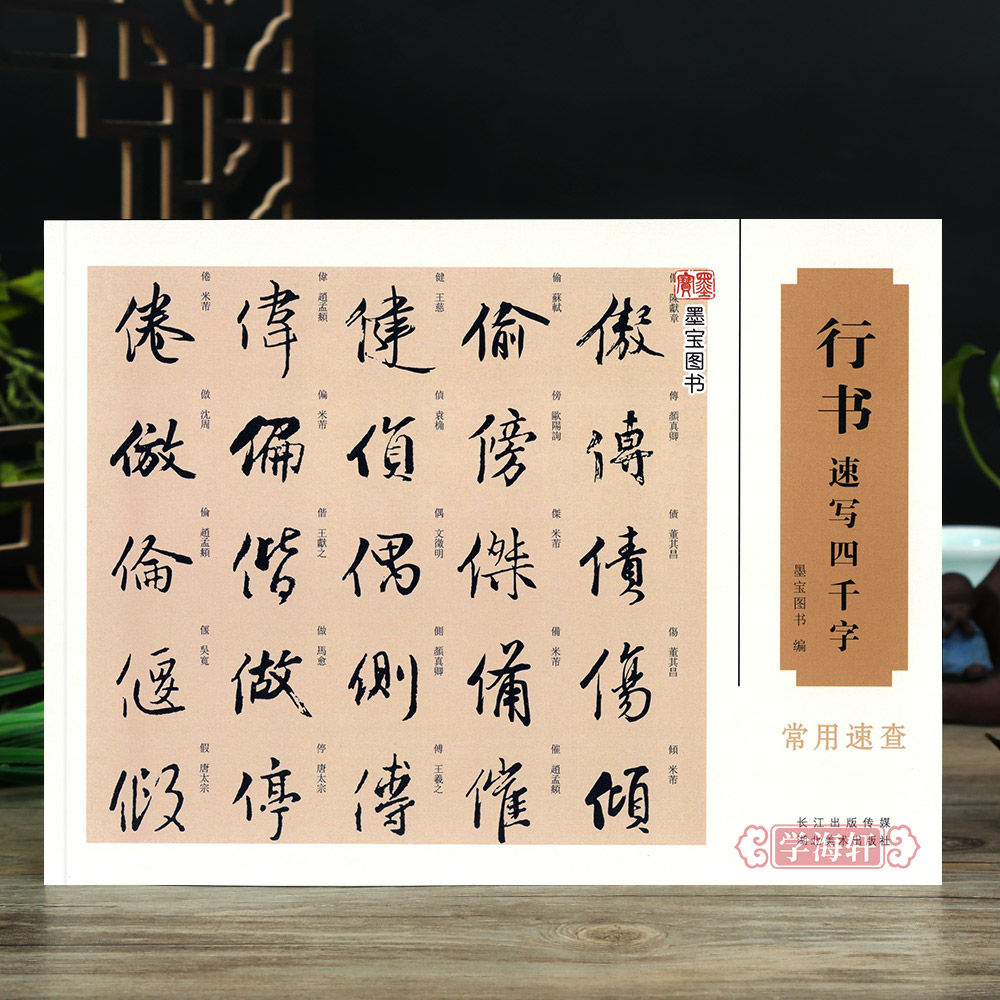 倦
倦 米芾
倣
倣 沈周
倫
倫 趙孟頫
偃
偃 吳寬
假
假 唐太宗
偉
偉 趙孟頫
偏
偏 米芾
偕
偕 王獻之
做
做 馬愈
停
停 唐太宗
健
健 王慈
偵
偵 袁桷
偶
偶 文徵明
側
側 顏真卿
傅
傅 王羲之
偷
偷 蘇軾
傍
傍 歐陽詢
傑
傑 米芾
備
備 米芾
催
催 趙孟頫
傲
陳獻章
傳
傳 顏真卿
債
債 董其昌
傷
傷 董其昌
傾
傾 米芾
墨寶
墨宝图书
行书
速写四千字
墨宝图书 编
常用速查
长江出版传媒
湖北美术出版社
学海轩